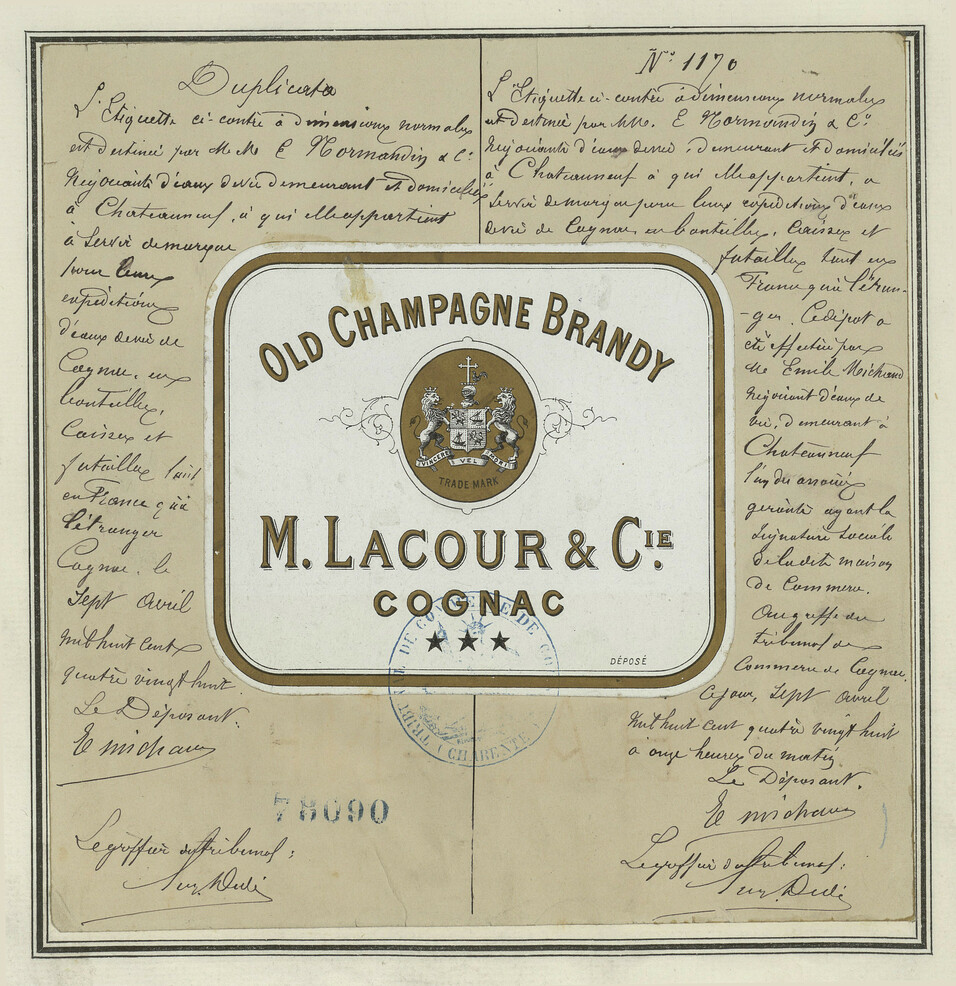 Duplicata
L'Etiquette ci-contre à dimensions normales
est destinée par M M E Normandin & Cie
Négociants d'eaux de vie demeurant et domiciliés
à Chateauneuf, à qui elle appartient
à Servir de marque
pour leurs
expéditions
d'eaux de vie de
Cognac, en
bouteilles,
Caisses et
futailles tant
en France qu'à
l'étranger
Cognac, le
Sept Avril
mil huit cent
quatre vingt huit.
Le Déposant.
E michaud
Le greffier du tribunal:
No. 1170
L'Etiquette ci-contre à dimensions normales
est destinée par MM. E Normandin & Cie
Négociants d'eaux de vie, demeurant et domiciliés
à Chateauneuf à qui elle appartient, a
Servir de marque pour leurs expéditions d'eaux
de vie de Cognac en bouteilles, Caisses et
futailles tant en
France qu'à l'étran-
-ger. Ce dépot a
été effectué par
Mr Emile Michaud
Négociant d'eaux de
vie, demeurant à
Chateauneuf
l'un des associés
gérants ayant la
Signature Sociale
de la dite maison
de Commerce.
Au greffe du
tribunal de
Commerce de Cognac.
Ce jour, Sept Avril
mil huit cent quatre vingt huit
à onze heures du matin
Le Déposant.
E michaud
Le greffier du tribunal:
OLD CHAMPAGNE BRANDY
VINCERE VEL MORI
TRADE MARK
M. LACOUR & CIE.
COGNAC
DÉPOSÉ
TRIBAL DE COMMERCE DE COGNAC
(CHARENTE)
78090